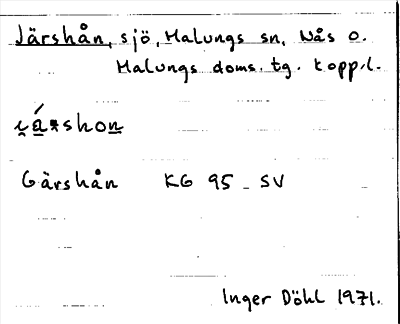 Järshån, sjö, Malungs sn, Nås o.
Malungs doms. tg. Kopp.l.
Gärshån KG 95 - SV
Inger Döhl 1971.